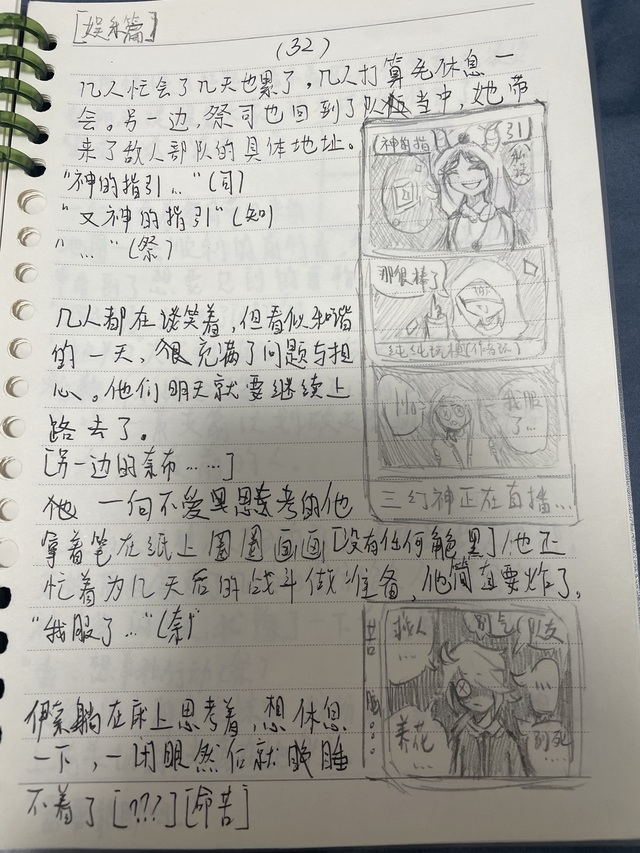 [娱乐篇]
(32)
几人忙会了几天也累了，几人打算先休息一
会。另一边，祭司也回到了队伍当中，她带
来了敌人部队的具体地址。
"神的指引…"(司)
"又神的指引"(知)
"…"(祭)
神的指引
那很棒了
纯纯玩梗
我服
了…
三幻神正在直播…
几人都在谈笑着，但看似和谐
的一天，很充满了问题与担
心。他们明天就要继续上
路去了。
[另一边的奈布……]
他 一向不爱思考的他
拿着笔在纸上圈圈画画[没有任何能里]他正
忙着为几天后的战斗做准备，他简直要炸了。
"我服了…"(奈)
救人
…
队友
…
养花
…
别死
…
伊索躺在床上思考着，想休息
一下，一闭眼然后就睡
不着了[???][命苦]